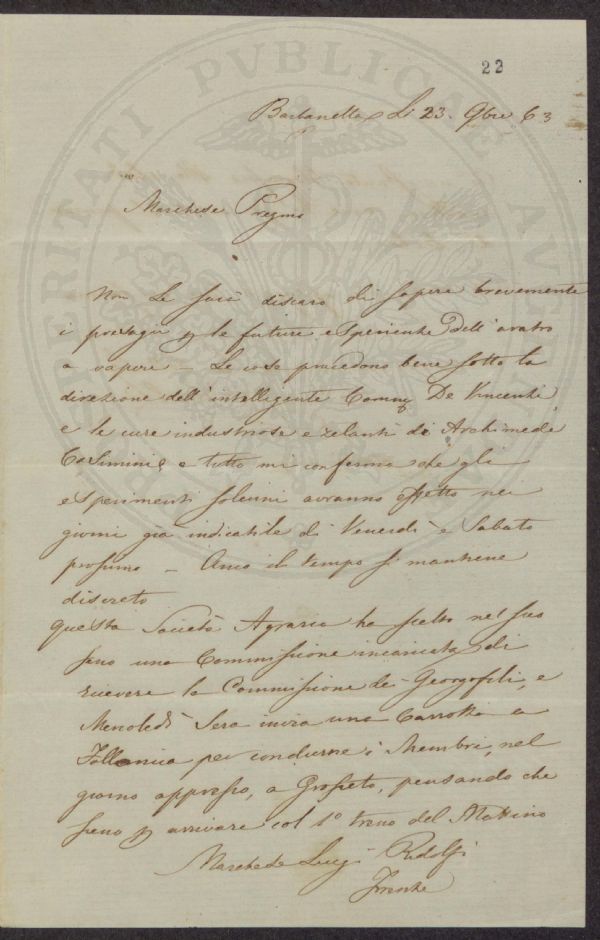 22
Barbanella Li 23. 9bre 63
Marchese Pregmo
Non Le sarà discaro di sapere brevemente
i presagii p le future esperienze dell'aratro
a vapore – Le cose procedono bene sotto la
direzione dell'intelligente Comm De Vincenzi
e le cure industriose e zelanti di Archimede
e tutto mi conferma che gli
esperimenti solenni avranno effetto nei
giorni già indicatile di Venerdì e Sabato
prossimo – Anco il tempo si mantiene
discreto
Questa Società Agraria ha scelto nel suo
seno una Commissione incaricata di
ricevere la Commissione de' Georgofili, e
Mercoledì Sera invia una Carrozza a
Follonica per condurne i Membri, nel
giorno appresso, a Grosseto, pensando che
sieno p arrivare col 1º treno del Mattino
Marchese Luigi Ridolfi
Firenze